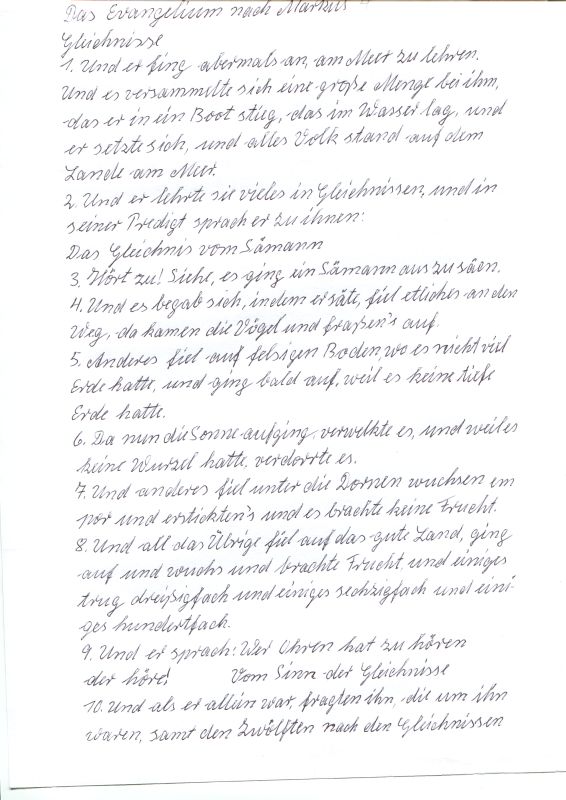 Das Evangelium nach Markus
Gleichnisse
1. Und er fing abermals an, am Meer zu lehren.
Und es versammelte sich eine große Menge bei ihm,
das er in ein Boot stieg, das im Wasser lag, und
er setzte sich, und alles Volk stand auf dem
Lande am Meer.
2. Und er lehrte sie vieles in Gleichnissen, und in
seiner Predigt sprach er zu ihnen:
Das Gleichnis vom Sämann
3. Hört zu! Siehe, es ging ein Sämann aus zu säen.
4. Und es begab sich, indem er säte, fiel etliches an den
Weg, da kamen die Vögel und fraßen's auf.
5. Anderes fiel auf felsigen Boden, wo es nicht viel
Erde hatte, und ging bald auf, weil es keine tiefe
Erde hatte.
6. Da nun die Sonne aufging, verwelkte es, und weil es
keine Wurzel hatte, verdorrte es.
7. Und anderes fiel unter die Dornen wuchsen em
por und erstickten's und es brachte keine Frucht.
8. Und all das Übrige fiel auf das gute Land, ging
auf und wuchs und brachte Frucht, und einiges
trug dreißigfach und einiges sechzigfach und eini-
ges hundertfach.
9. Und er sprach: Wer Ohren hat zu hören
der höre! Vom Sinn der Gleichnisse
10. Und als er allein war, fragten ihn, die um ihn
waren, samt den Zwölften nach den Gleichnissen